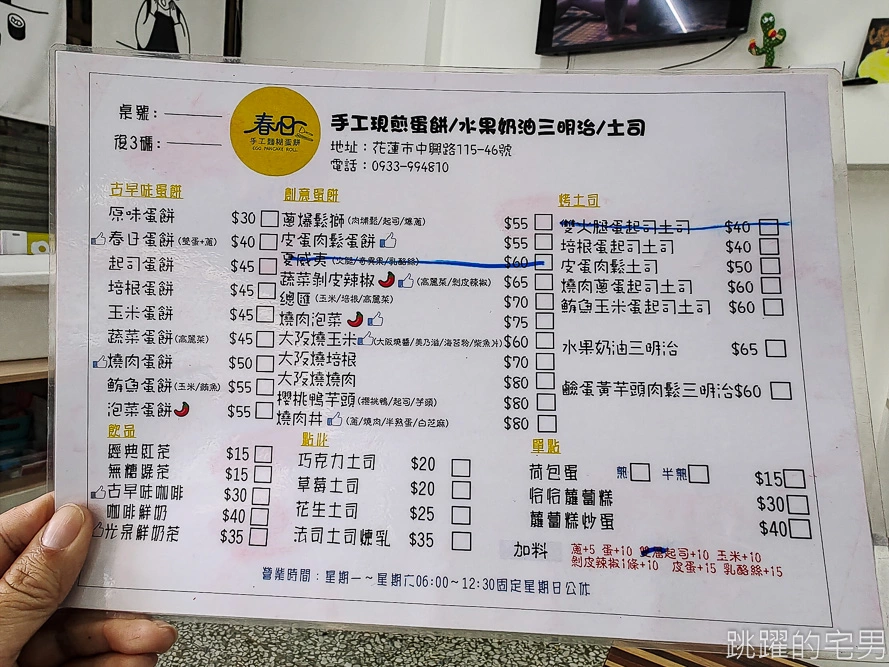 桌號：
後3碼：
春日
手工麵糊蛋餅
EGG PANCAKE ROLL
手工現煎蛋餅/水果奶油三明治/土司
地址：花蓮市中興路115-46號
電話：0933-994810
古早味蛋餅
原味蛋餅 $30
春日蛋餅(雙蛋+蔥) $40
起司蛋餅 $45
培根蛋餅 $45
玉米蛋餅 $45
蔬菜蛋餅(高麗菜) $45
燒肉蛋餅 $50
鮪魚蛋餅(玉米/鮪魚) $55
泡菜蛋餅 $55
創意蛋餅
蔥爆鬆獅(肉埔鬆/起司/爆蔥) $55
皮蛋肉鬆蛋餅 $55
夏威夷(火腿/奇異果/乳酪絲) $60
蔬菜剝皮辣椒(高麗菜/剝皮辣椒) $65
總匯(玉米/培根/高麗菜) $70
燒肉泡菜 $75
大阪燒玉米(大阪燒醬/美乃滋/海苔粉/柴魚片) $60
大阪燒培根 $70
大阪燒燒肉 $80
櫻桃鴨芋頭(櫻桃鴨/起司/芋頭) $80
燒肉丼(蔥/燒肉/半熟蛋/白芝麻) $80
烤土司
雙火腿蛋起司土司 $40
培根蛋起司土司 $40
皮蛋肉鬆土司 $50
燒肉蔥蛋起司土司 $60
鮪魚玉米蛋起司土司 $60
水果奶油三明治 $65
鹼蛋黃芋頭肉鬆三明治$60
飲品
經典紅茶 $15
無糖綠茶 $15
古早味咖啡 $30
咖啡鮮奶 $40
光泉鮮奶茶 $35
點心
巧克力土司 $20
草莓土司 $20
花生土司 $25
法司土司煉乳 $35
單點
荷包蛋 煎 半煎 $15
恰恰蘿蔔糕 $30
蘿蔔糕炒蛋 $40
加料
蔥+5 蛋+10 起司+10 玉米+10
剝皮辣椒1條+10 皮蛋+15 乳酪絲+15
營業時間：星期一~星期六06:00~12:30固定星期日公休
跳躍的宅男